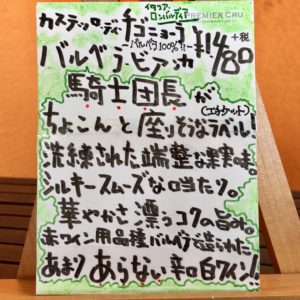 イタリア・ロンバルディア
PREMIER CRU
カステッロ・ディ・チコニョーラ
~バルベラ100%!!~
¥1480
+税
バルベラ・ビアンカ
騎士団長が
(エチケット)
ちょこんと座りそうなラベル!
洗練された端整な果実味。
シルキースムーズな口当たり。
華やかさ漂うコクの旨み。
赤ワイン用品種バルベラで造られた
あまりあらない辛口白ワイン!!